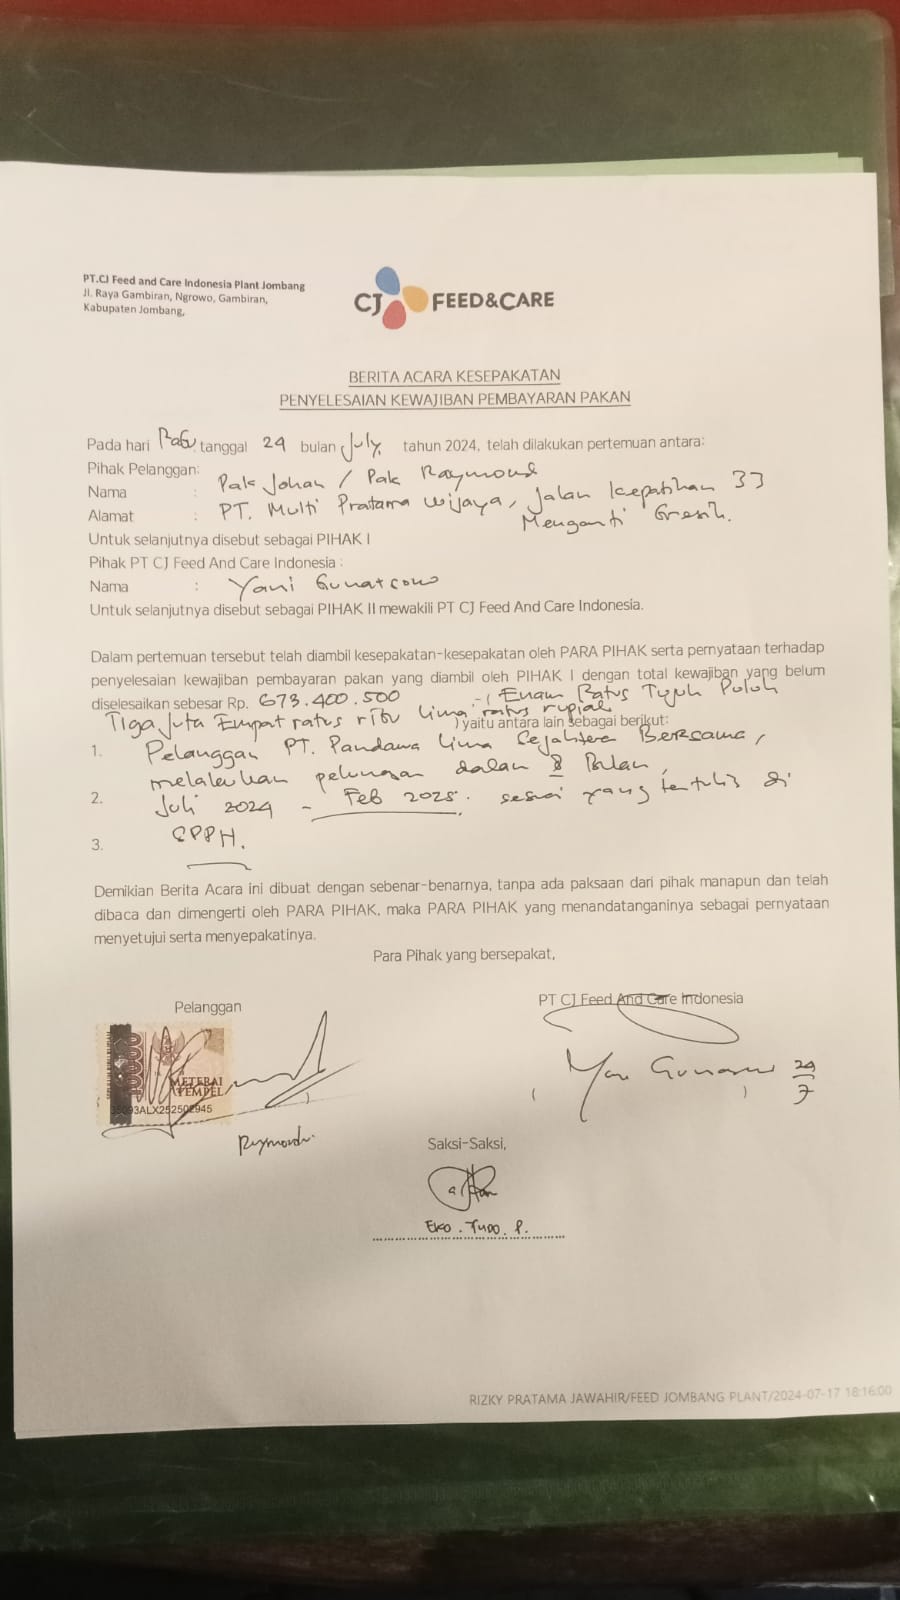 PT.CJ Feed and Care Indonesia Plant Jombang
Jl. Raya Gambiran, Ngrowo, Gambiran,
Kabupaten Jombang,
CJ FEED&CARE
BERITA ACARA KESEPAKATAN
PENYELESAIAN KEWAJIBAN PEMBAYARAN PAKAN
Pada hari Rabu tanggal 24 bulan July, tahun 2024, telah dilakukan pertemuan antara:
Pihak Pelanggan:
Nama : Pak Johan / Pak Raymond
Alamat : PT. Multi Pratama Wijaya, Jalan Kepatihan 33
Menganti Gresik.
Untuk selanjutnya disebut sebagai PIHAK I
Pihak PT CJ Feed And Care Indonesia :
Nama : Yani
Untuk selanjutnya disebut sebagai PIHAK II mewakili PT CJ Feed And Care Indonesia.
Dalam pertemuan tersebut telah diambil kesepakatan-kesepakatan oleh PARA PIHAK serta pernyataan terhadap
penyelesaian kewajiban pembayaran pakan yang diambil oleh PIHAK I dengan total kewajiban yang belum
diselesaikan sebesar Rp. 673.400.500 ,-( Enam Ratus Tujuh Puluh
Tiga Juta Empat ratus ribu lima ratus rupiah )yaitu antara lain sebagai berikut:
1. Pelanggan PT. Pandawa Lima Sejahtera Bersama,
melakukan pelunasan dalam 8 Bulan,
2. Juli 2024 - Feb 2025. sesuai yang tertulis di
3. SPPH.
Demikian Berita Acara ini dibuat dengan sebenar-benarnya, tanpa ada paksaan dari pihak manapun dan telah
dibaca dan dimengerti oleh PARA PIHAK, maka PARA PIHAK yang menandatanganinya sebagai pernyataan
menyetujui serta menyepakatinya.
Para Pihak yang bersepakat,
Pelanggan
PT CJ Feed And Care Indonesia
10000
METERAI
TEMPEL
ALX252502945
24/7
Raymond.
Saksi-Saksi,
RIZKY PRATAMA JAWAHIR/FEED JOMBANG PLANT/2024-07-17 18:16:00